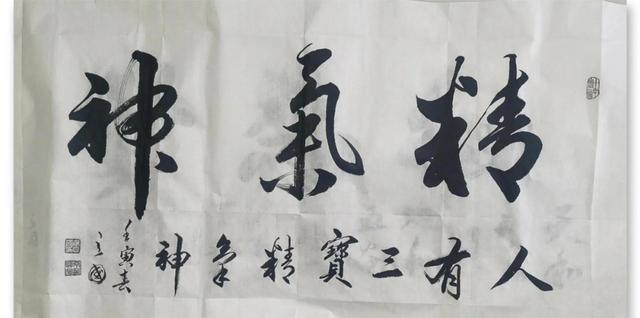 精氣神
人有三寶精氣神
壬寅春
立國